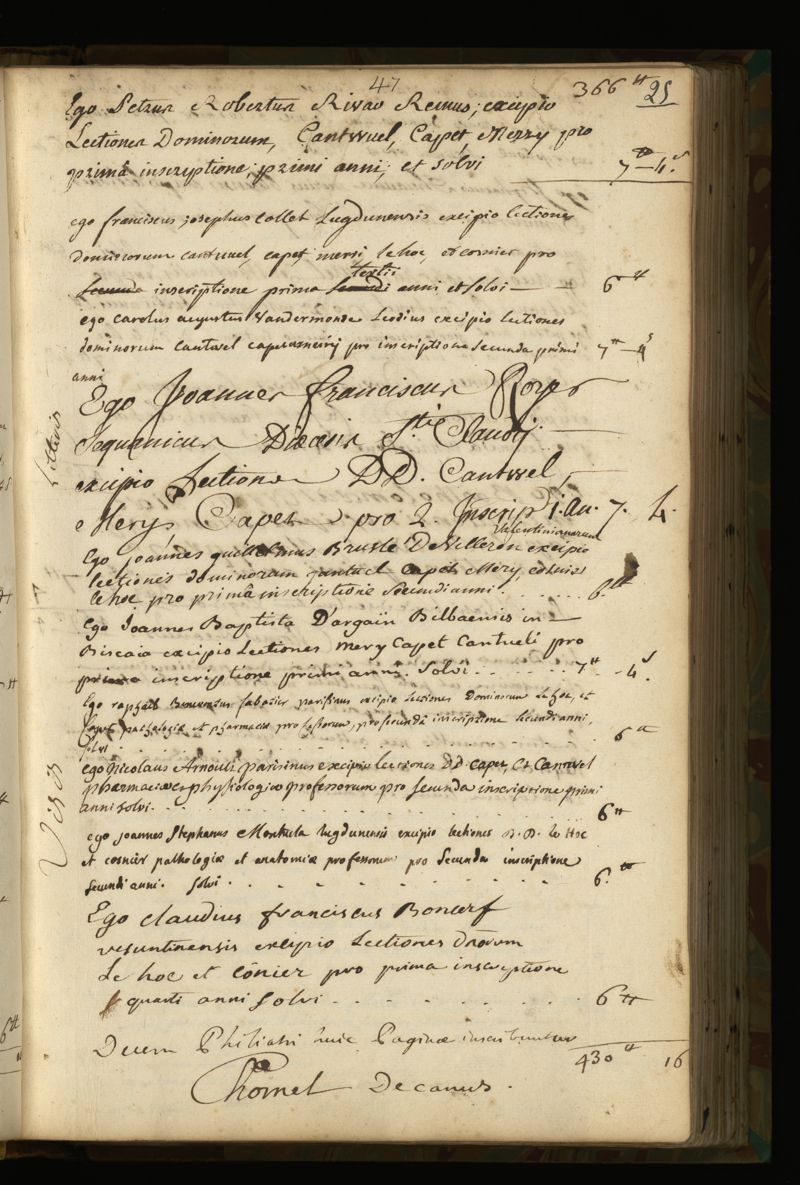 47
366 ₶ 25
Ego Petrus Robertus Rivau Remus; excipio
Lectiones Dominorum, Cantwuel, Capet, Merry pro
primâ inscriptione; primi anni; et solvi 7 ₶ – 4 s.
ego franciscus josephus collet Lugdunensis excipio lectiones
dominorum cantuuel, capet, mersi, le hoc, et cosnier pro
tertii
Secunda inscriptione prima Secundi anni et solvi — — 6 ₶
ego carolus augustus Vandermonde excipio lectiones
dominorum Cantwel pro inscriptione secunda primi 7 ₶ – 4 s
anni
Ego Joannes franciscus
Sequanicus Diœcesis Sti Claudij
Littavis
excipio Lectiones DD. Cantwel,
Mery, Capet pro 2. Inscript. 1. an. 7. 4.
Valentinianarum
Ego joannes guillelmus Brusle DeVilleron excipio
lectiones dominorum cantuel capet Mery, cosnier
le hoc pro primâ inscriptione Secundi anni. . . . . . . 6. ₶
Ego Joannes Baptista D'argaïn Bilbaensis in
Biscaia excipio Lectiones mery Capet Cantueli pro
prima inscriptione primi anni. Solvi . . . . . . . 7 ₶ - 4 s.
Ego raphaël Bienvenutus sabatier parisinus excipio lectiones dominorum le hoc, et
pathologiæ et pharmaciæ professorum, pro secundâ inscriptione secundi anni,
solvi . . . . . . . . . . . . 6 ₶
Visis
ego Nicolaus Arnoult parisinus excipio lectiones DD. capet, et Cantwel
pharmaciæ et physiologiæ professorum pro secunda inscriptione primi
anni solvi . . . . . . . . . . . . 6 ₶
ego joannes Stephanus Montula lugdunensis excipio lectiones D. D. le Hoc
et cosnier pathologiæ et anatomiæ professorum pro Secunda inscriptione
secundi anni. solvi . . . . . . . . . 6. ₶
Ego claudius franciscus Boncerf
vesuntinensis excipio Lectiones dnorum
Le hoc et cônier pro prima inscriptione
quarti anni solvi . . . . . . . . . 6 ₶
Decem Philiatri huic Paginæ inscribuntur
430 ₶ 16
Chomel Decanus.